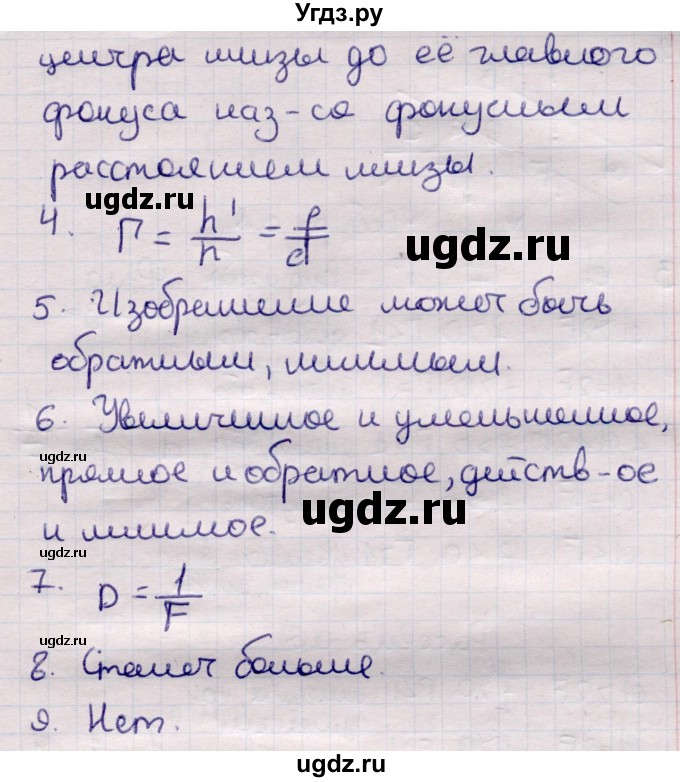 Угдз.ру
центра линзы до её главного
фокуса наз-ся фокусным
расстоянием линзы.
ugdz.ru
4. Г = h'/h = f/d
ugdz.ru
5. Изображение может быть
обратным, мнимым.
6. Увеличенное и уменьшенное,
ugdz.ru
прямое и обратное, действ-ое
и мнимое.
ugdz.ru
7. D = 1/F
ugdz.ru
8. Станет больше.
9. Нет.
ugdz.ru
ugdz.ru